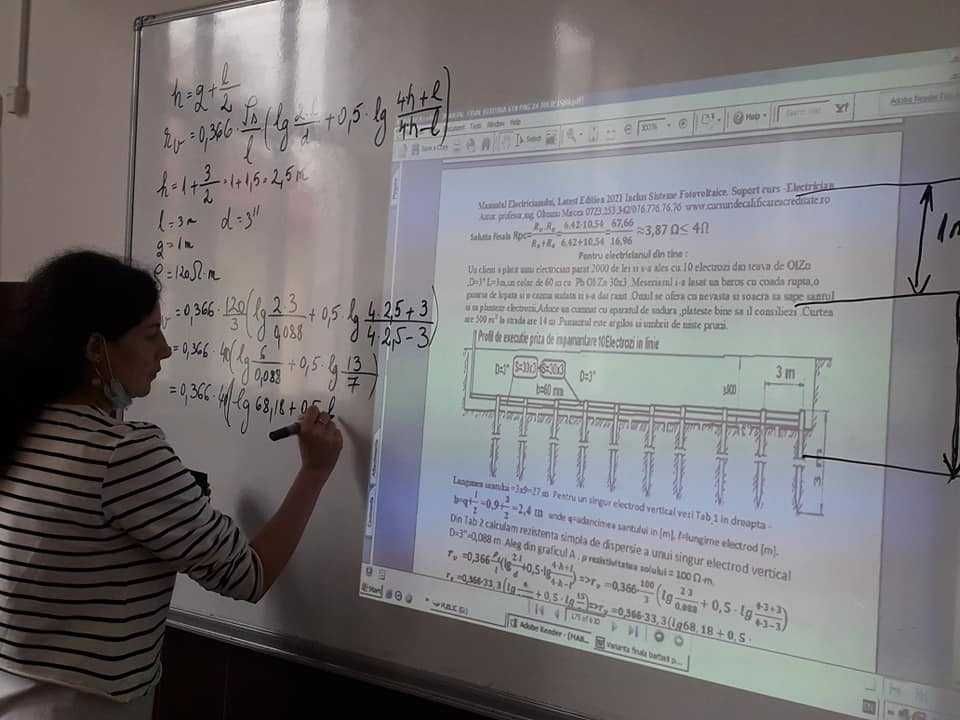 h = q + l/2
r_v = 0,366 · ρs/l (lg 2·l/d + 0,5 · lg 4h+l/4h-l)
h = 1 + 3/2 = 1 + 1,5 = 2,5 m
l = 3 m d = 3"
q = 1 m
ρ = 120 Ω·m
= 0,366 · 120/3 (lg 2·3/0,088 + 0,5 · lg 4·2,5+3/4·2,5-3)
= 0,366 · 40 (lg 6/0,088 + 0,5 · lg 13/7)
= 0,366 · 40 (lg 68,18 + 0,5 l
Window Help
Select
100%
Help
Manualul Electricianului, Latest Edition 2021 Inclus Sisteme Fotovoltaice. Suport curs -Electrician
Autor. profesor,ing. Olteanu Mircea 0723.253.342/076.776.76.76 www.cursuridecalificareacreditate.ro
Solutia finala Rpc= = 6.42·10,54/6.42+10,54 = 67,66/16,96 ≈3,87 Ω≤ 4Ω
Pentru electricianul din tine :
Un client a platit unui electrician parat 2000 de lei si s-a ales cu 10 electrozi din teava de OlZn
,D=3" L=3m,un colac de 60 m cu Pb Ol Zn 30x3 .Meseriasul i-a lasat un baros cu coada rupta,o
pereche de lopata si o cazma uzdata si s-a dat ranit .Omul se ofera cu nevasta si soacra sa sape santul
si sa planteze electrozii,Aduce un cumnat cu aparatul de sudura ,plateste bine sa il consiliezi .Curtea
are 500 m² la strada are 14 m .Pamantul este argilos si umbrit de niste pruni.
Profil de executie priza de impamantare 10Electrozi in linie
S=30x3 S=30x3
D=3" D=3" 3 m
b=60 mm
3 m
1m
Lungimea santului =3x9=27 m Pentru un singur electrod vertical vezi Tab 1 in dreapta -
h=q+l/2=0,9+3/2=2,4 m unde q=adancimea santului in [m], l=lungime electrod [m].
Din Tab 2 calculam rezistenta simpla de dispersie a unui singur electrod vertical
D=3"=0,088 m Aleg din graficul A , ρ rezistivitatea solului = 100 Ω·m.
r_v =0,366·ρ/l(lg 2·l/d+0,5·lg 4·h+l/4·h-l)=>r_v =0,366·100/3 (lg 2·3/0.088 + 0,5 · lg
r_v =0,366·33,3 =0,366·33,3(lg68,18 + 0,5 ·
175 of 630
Adobe Reader - [MAN...
Varianta finala barbati p...